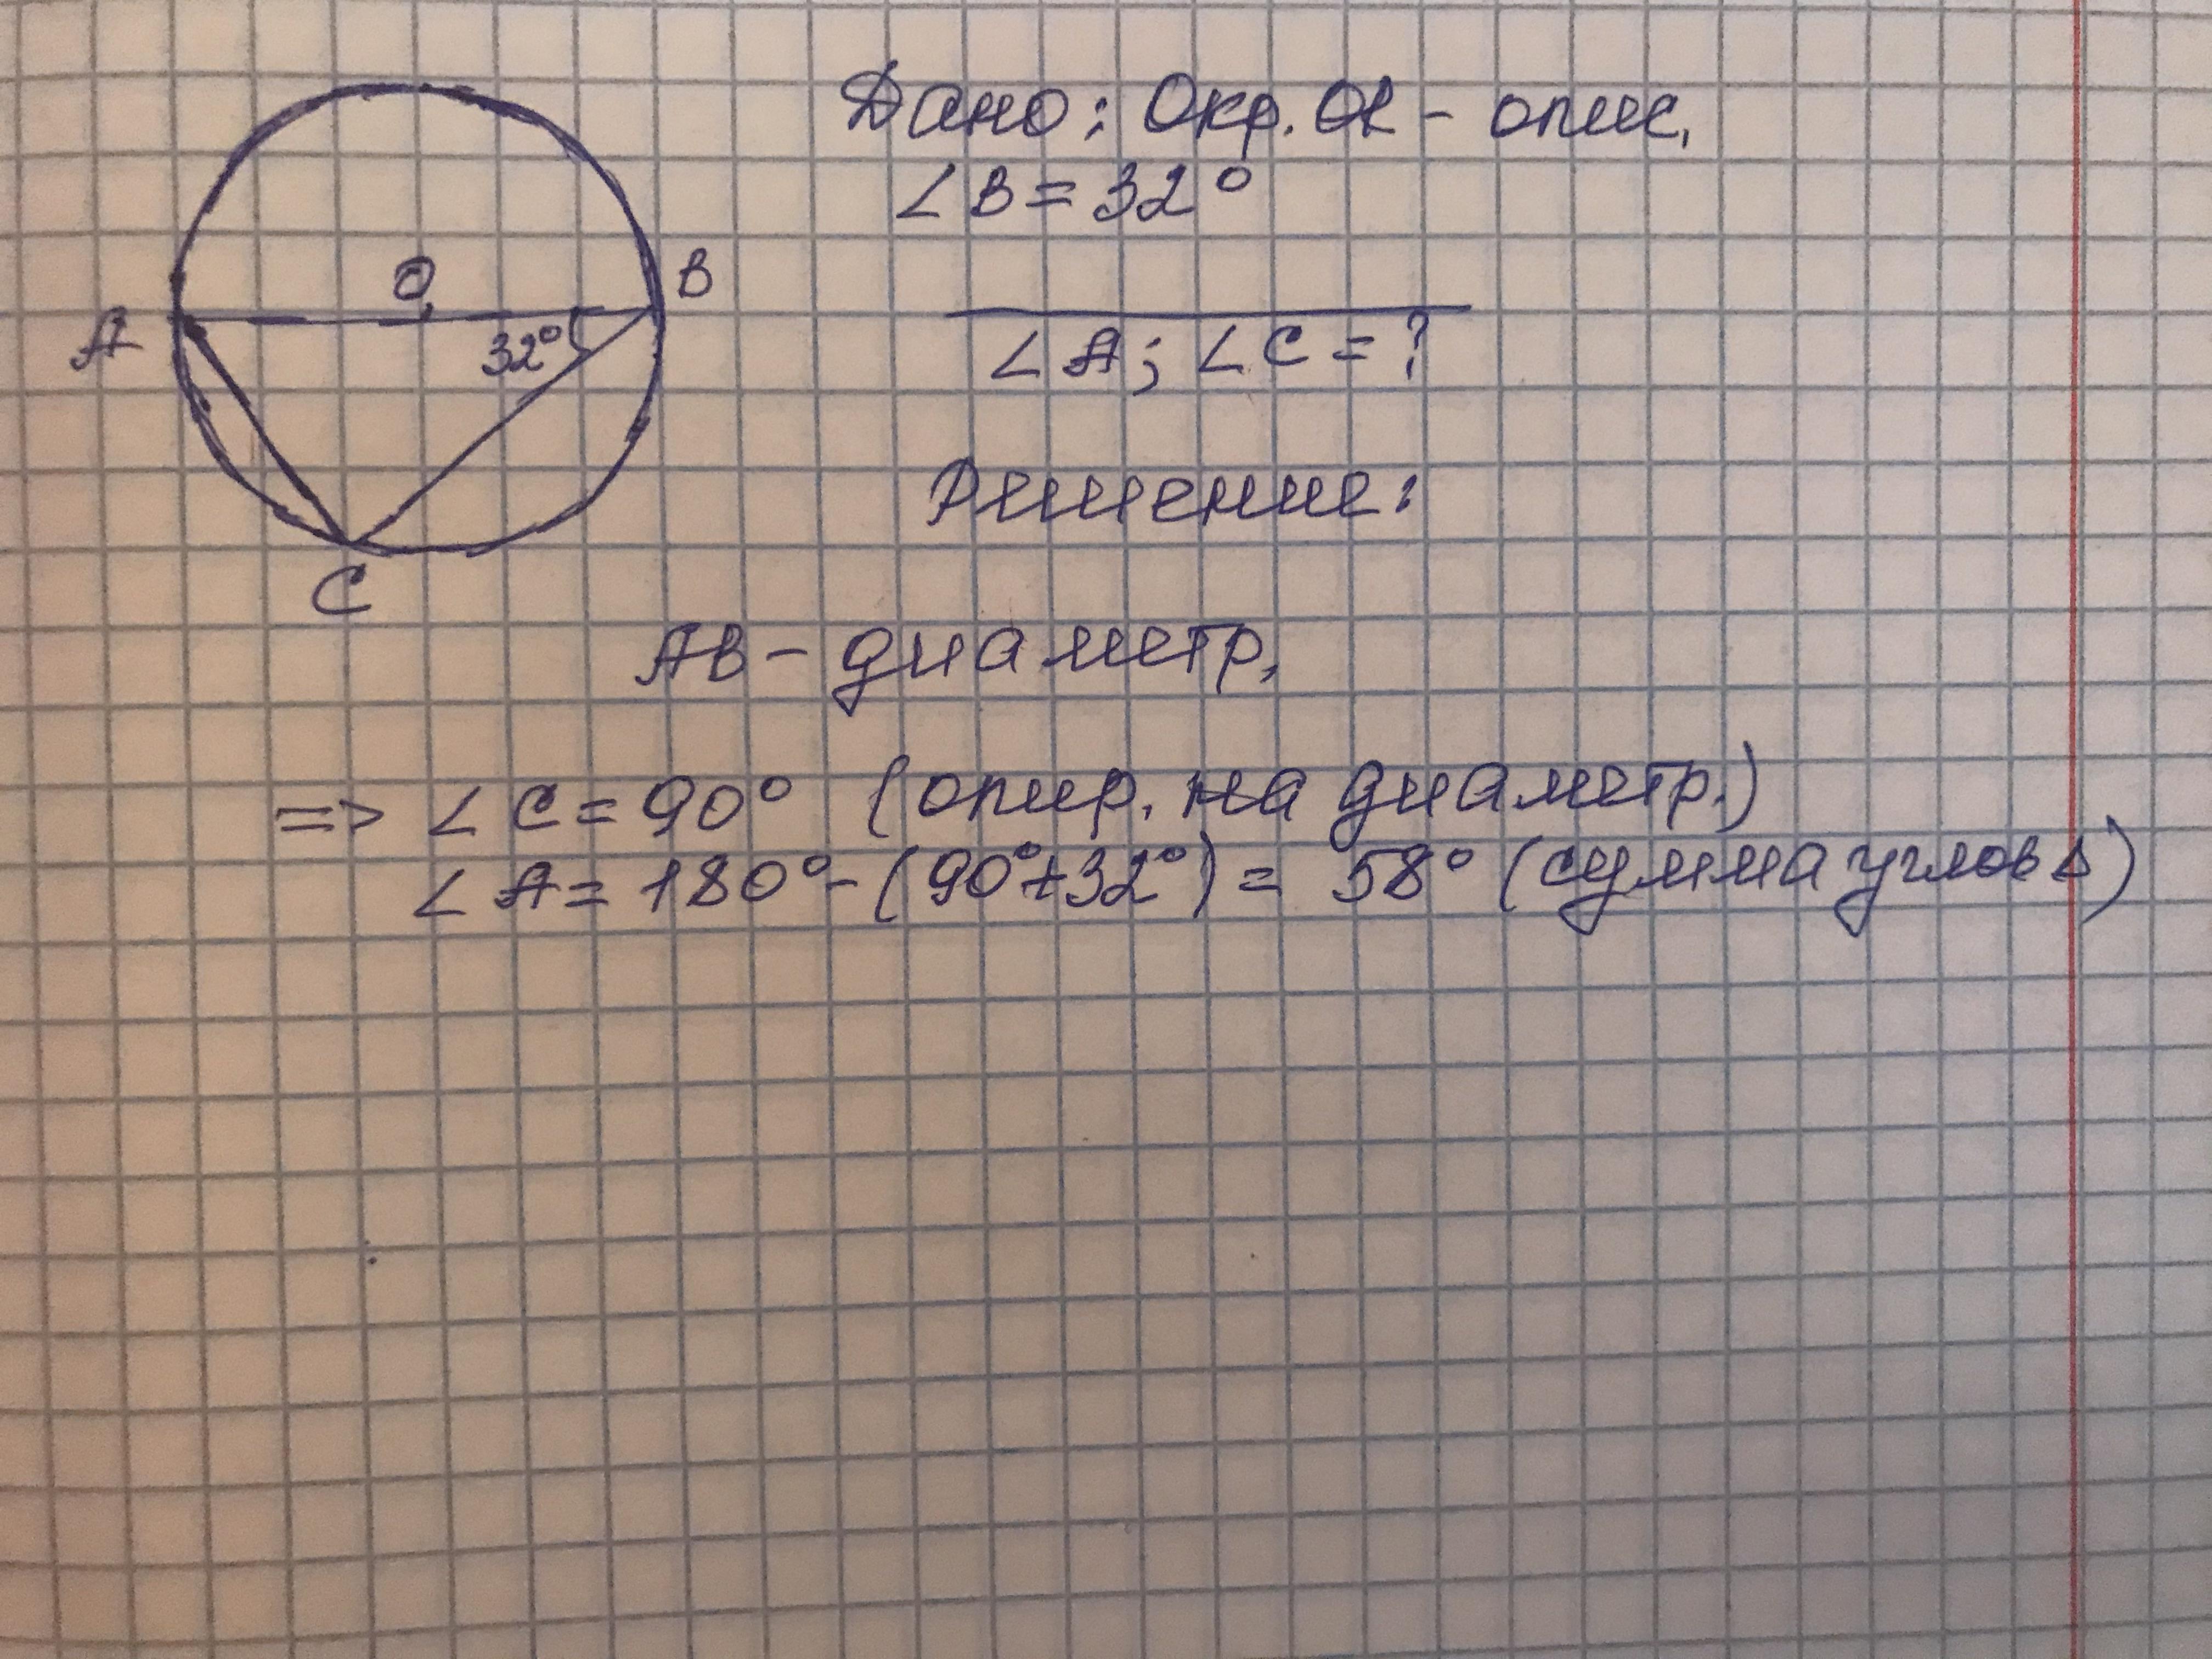 Дано: Окр. OR - опис.
∠B = 32°
O
B
A
32°
∠A; ∠C = ?
Решение:
C
AB - диаметр,
=> ∠C = 90° (опир. на диаметр.)
∠A = 180° - (90° + 32°) = 58° (сумма углов Δ)